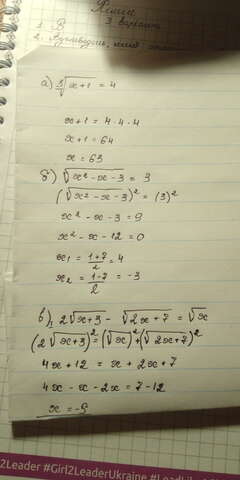 3 вариант
1. В
2.
а) ³√x+1 = 4
x+1 = 4·4·4
x+1 = 64
x = 63
б) √x²-x-3 = 3
(√x²-x-3)² = (3)²
x² - x - 3 = 9
x² - x - 12 = 0
x₁ = 1+7/2 = 4
x₂ = 1-7/2 = -3
в) 2√x+3 - √2x+7 = √x
(2√x+3)² = (√x)² + (√2x+7)²
4x+12 = x + 2x + 7
4x - x - 2x = 7-12
x = -5
2Leader #Girl2LeaderUkraine